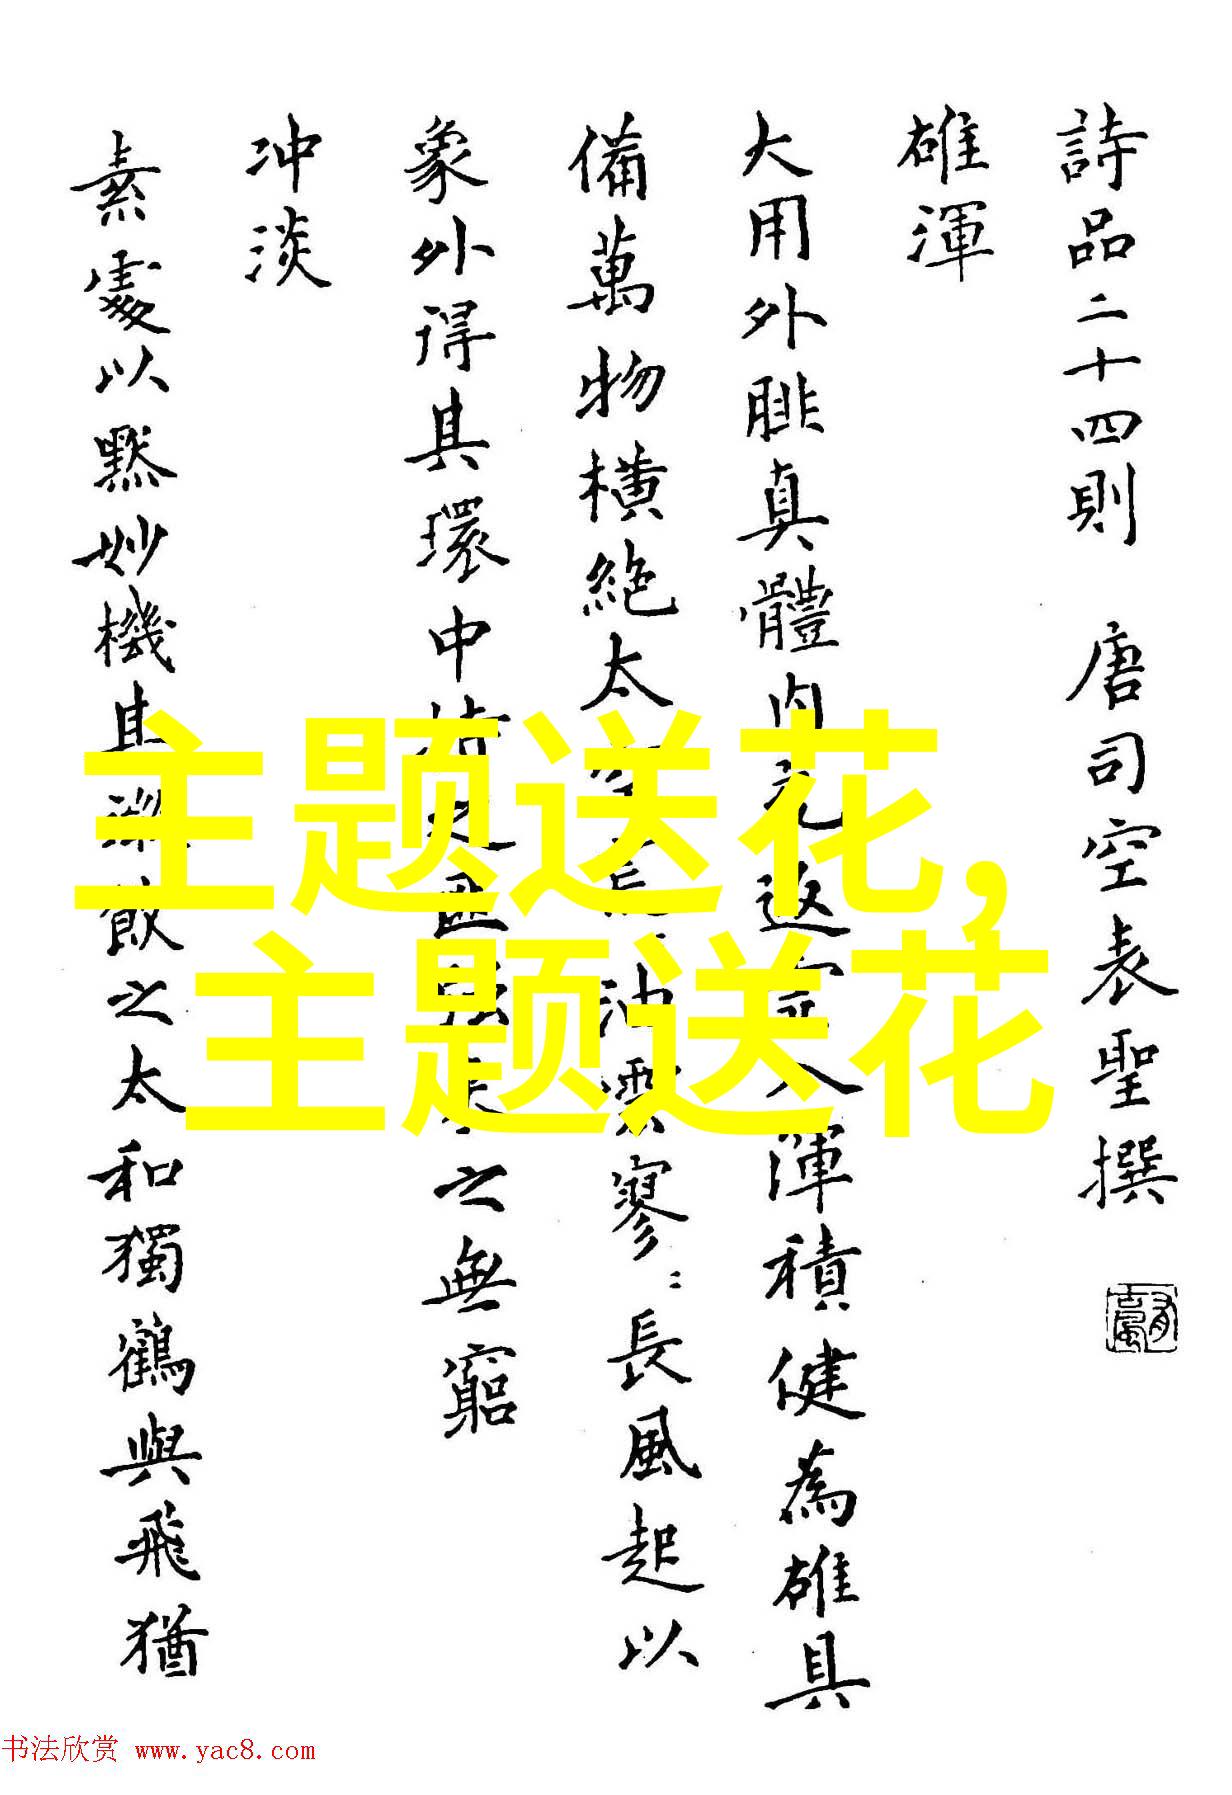 詩品二十四則 唐司空表聖撰
雄渾
大用外腓真體内充返入渾積健為雄具
備萬物橫絕太油雲寥〻長風超以
象外得其環中持之匪強來之無窮
冲淡
素處以默妙機其微飲之太和獨鶴與飛猶
主题送花,
主题送花
书法欣赏 www.yac8.com